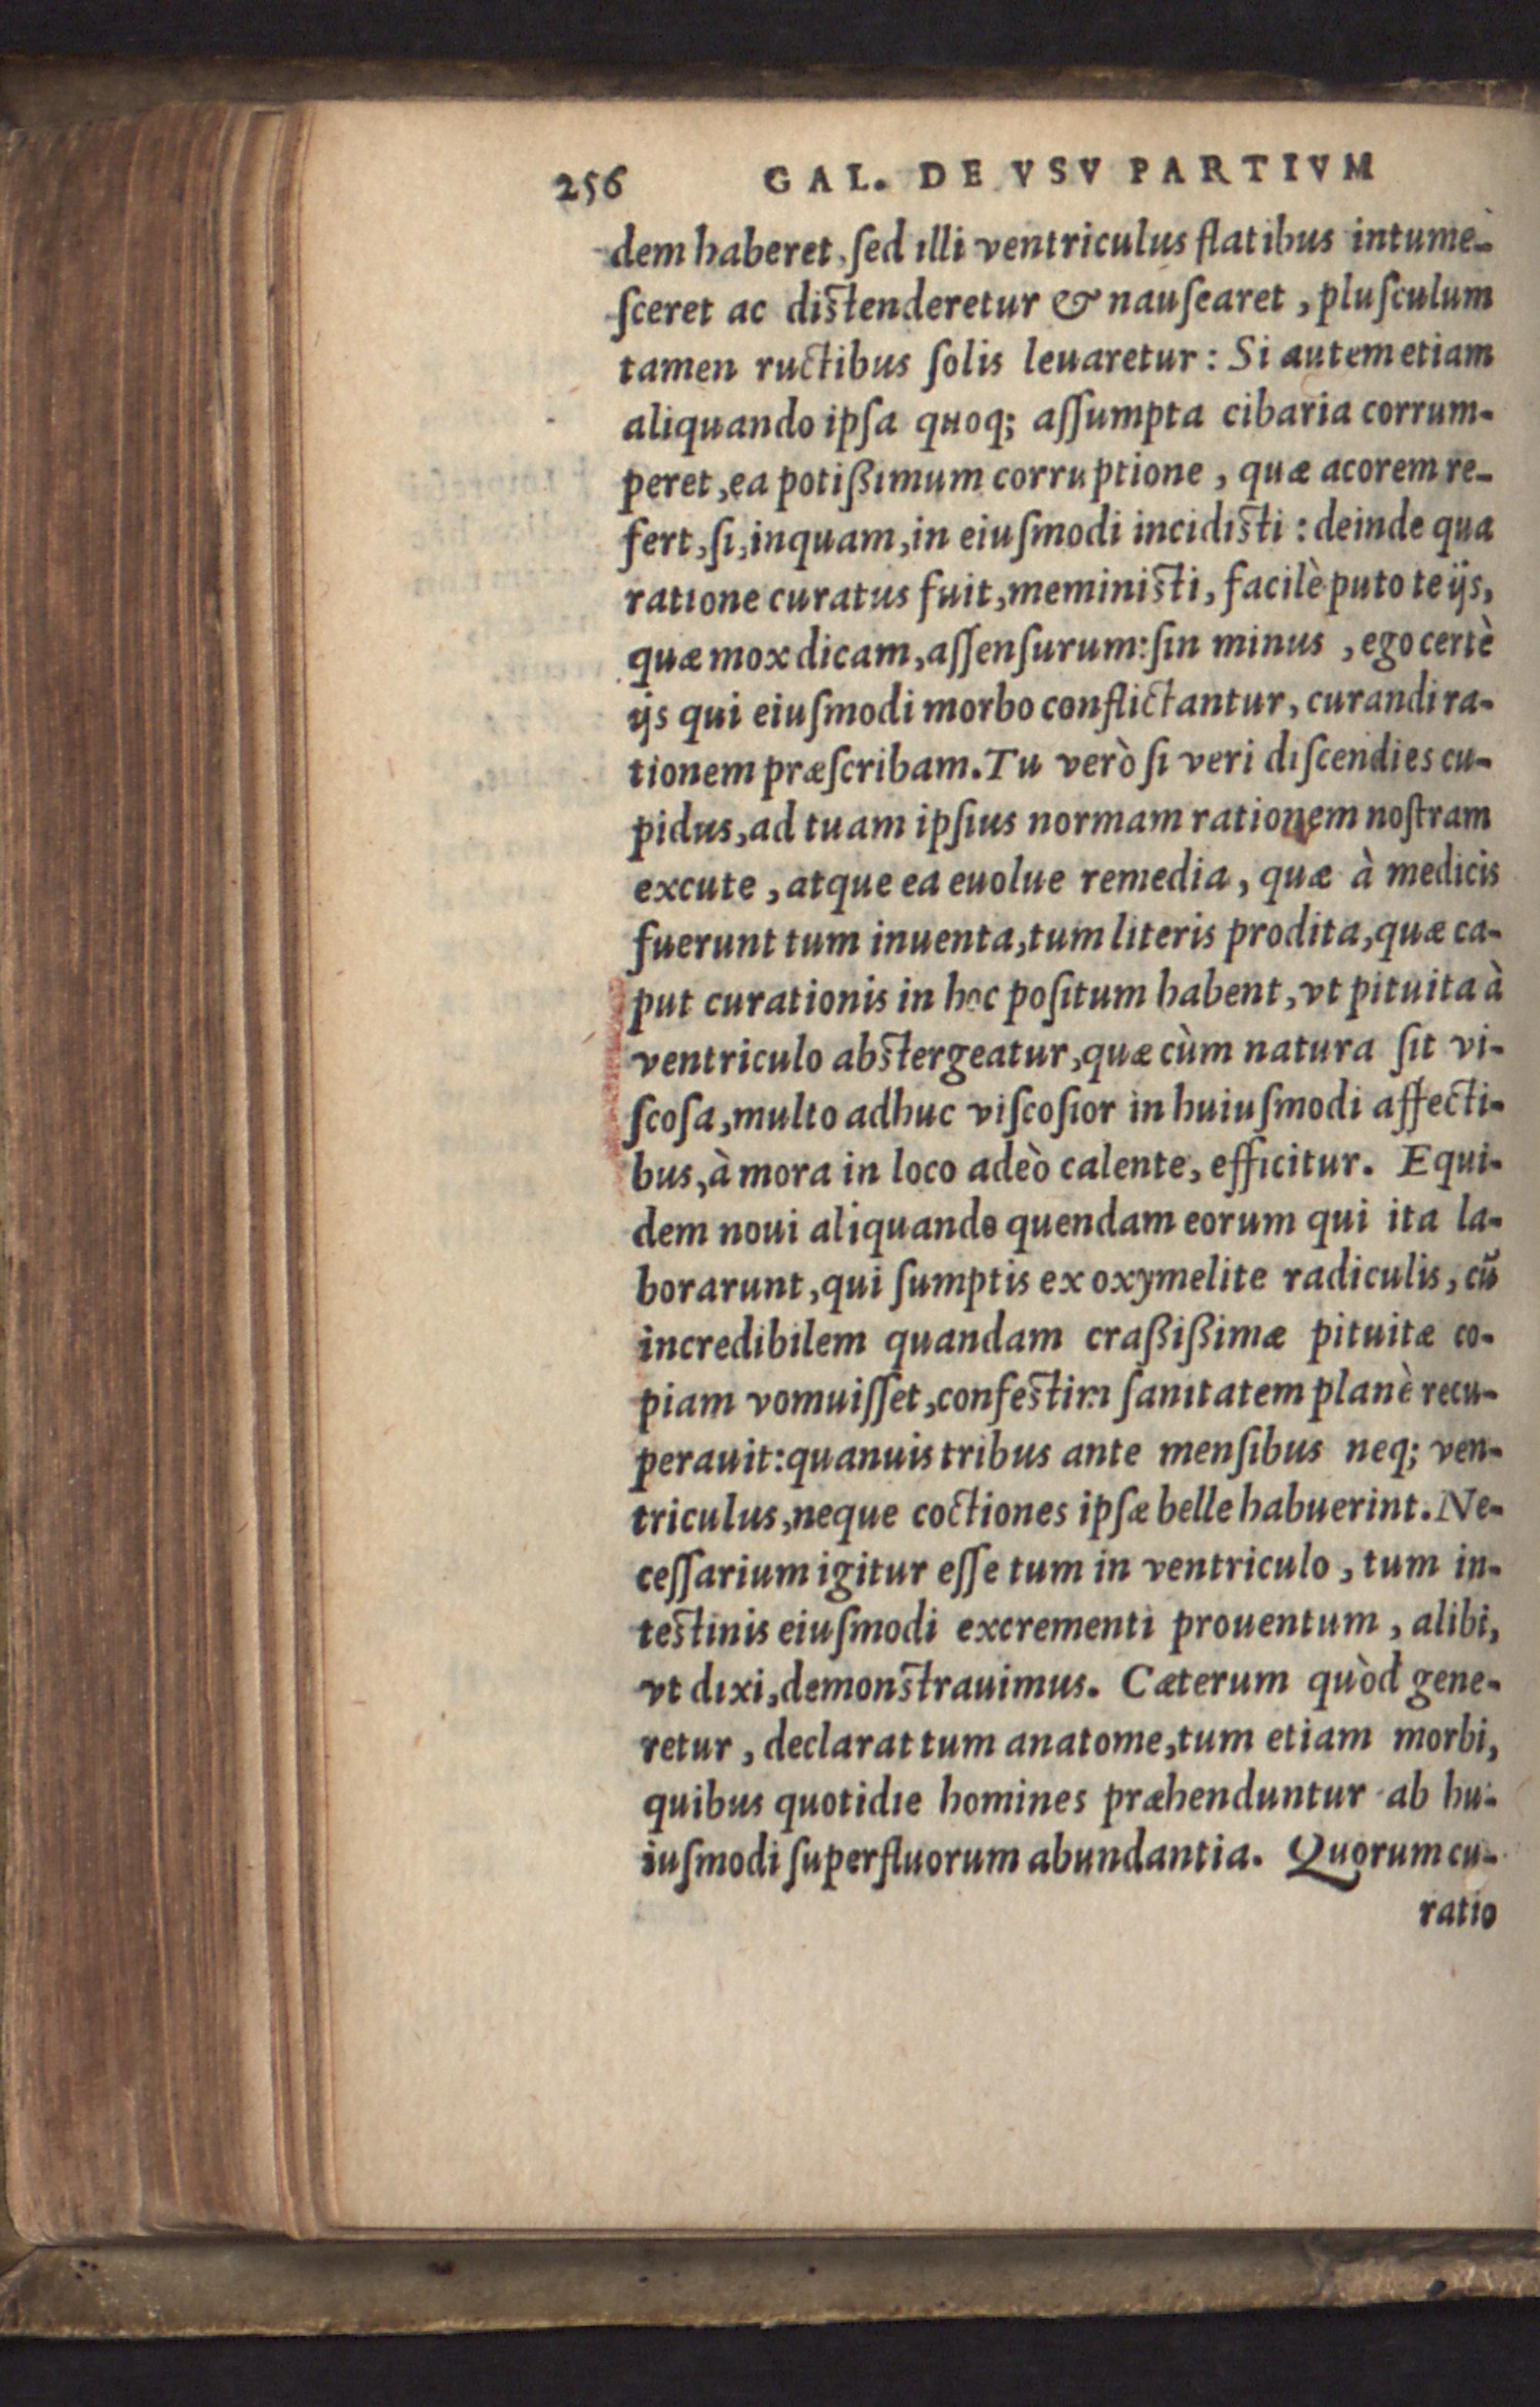 256 GAL. DE VSV PARTIVM
dem haberet, ſed illi ventriculus flatibus intume-
ſceret ac diſtenderetur & nauſearet, pluſculum
tamen ructibus ſolis leuaretur: Si autem etiam
aliquando ipſa quoq; aſſumpta cibaria corrum-
peret, ea potißimum corruptione, quæ acorem re-
fert, ſi, inquam, in eiuſmodi incidiſti: deinde qua
ratione curatus fuit, meminiſti, facilè puto te ijs,
quæ mox dicam, aſſenſurum: ſin minus, ego certè
ijs qui eiuſmodi morbo conflictantur, curandi ra-
tionem præſcribam. Tu verò ſi veri diſcendi es cu-
pidus, ad tuam ipſius normam rationem noſtram
excute, atque ea euolue remedia, quæ à medicis
fuerunt tum inuenta, tum literis prodita, quæ ca-
put curationis in hoc poſitum habent, vt pituita à
ventriculo abſtergeatur, quæ cùm natura ſit vi-
ſcoſa, multo adhuc viſcoſior in huiuſmodi affecti-
bus, à mora in loco adeò calente, efficitur. Equi-
dem noui aliquando quendam eorum qui ita la-
borarunt, qui ſumptis ex oxymelite radiculis, cū
incredibilem quandam craßißimæ pituitæ co-
piam vomuiſſet, confeſtim ſanitatem planè recu-
perauit: quanuis tribus ante menſibus neq; ven-
triculus, neque coctiones ipſæ belle habuerint. Ne-
ceſſarium igitur eſſe tum in ventriculo, tum in-
teſtinis eiuſmodi excrementi prouentum, alibi,
vt dixi, demonſtrauimus. Cæterum quòd gene-
retur, declarat tum anatome, tum etiam morbi,
quibus quotidie homines præhenduntur ab hu-
iuſmodi ſuperfluorum abundantia. Quorum cu-
ratio